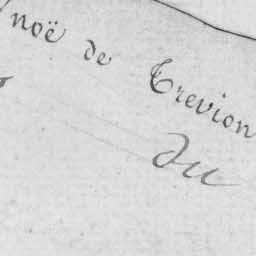 noë de Trevion
du